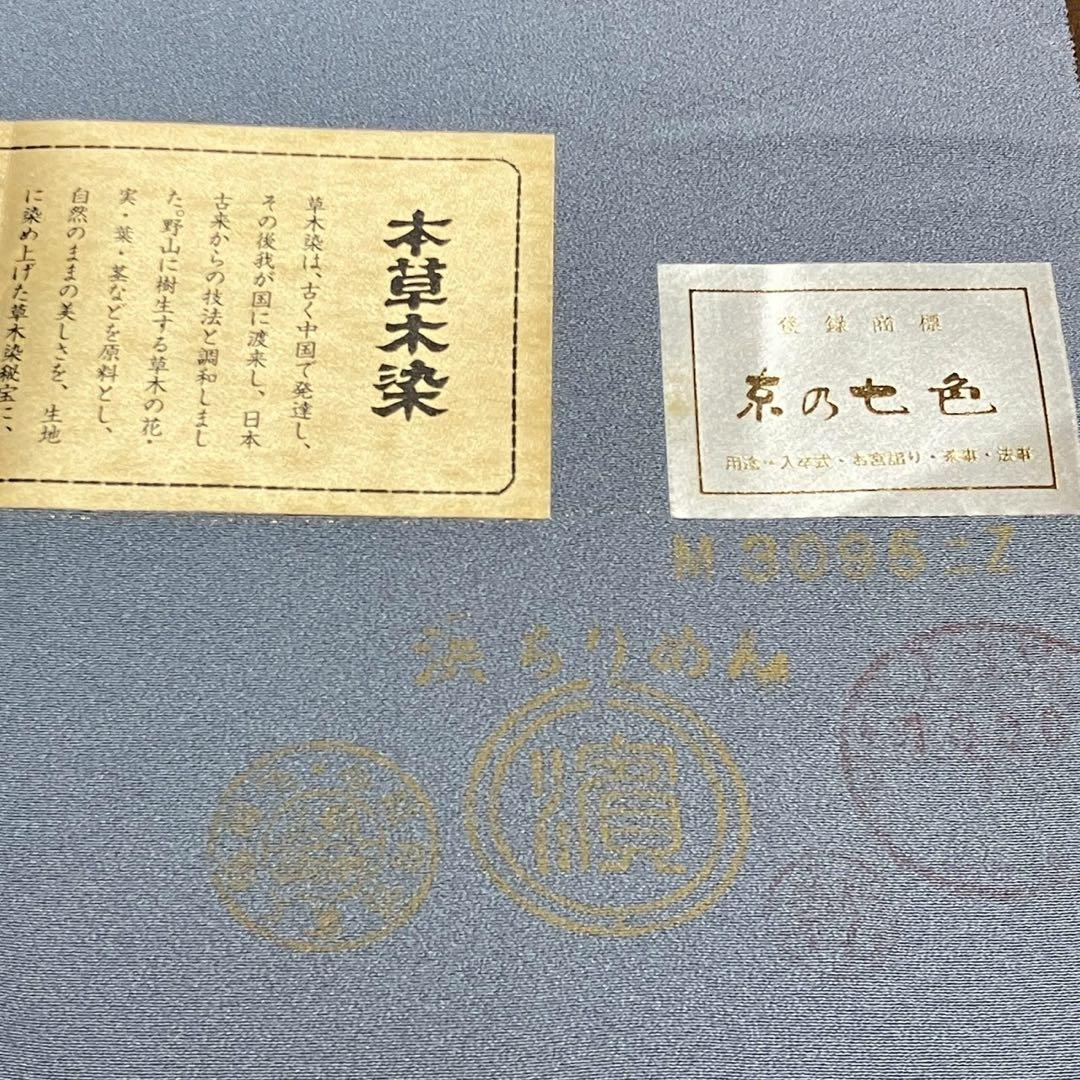 本草木染
草木染は、古く中国で発達し、
その後我が国に渡来し、日本
古来からの技法と調和しまし
た。野山に樹生する草木の花・
実・葉・茎などを原料とし、
自然のままの美しさを、生地
に染め上げた草木染秘宝に、
登録商標
京の七色
用途・入卒式・お宮詣り・茶事・法事
M3095-Z
浜ちりめん
濱